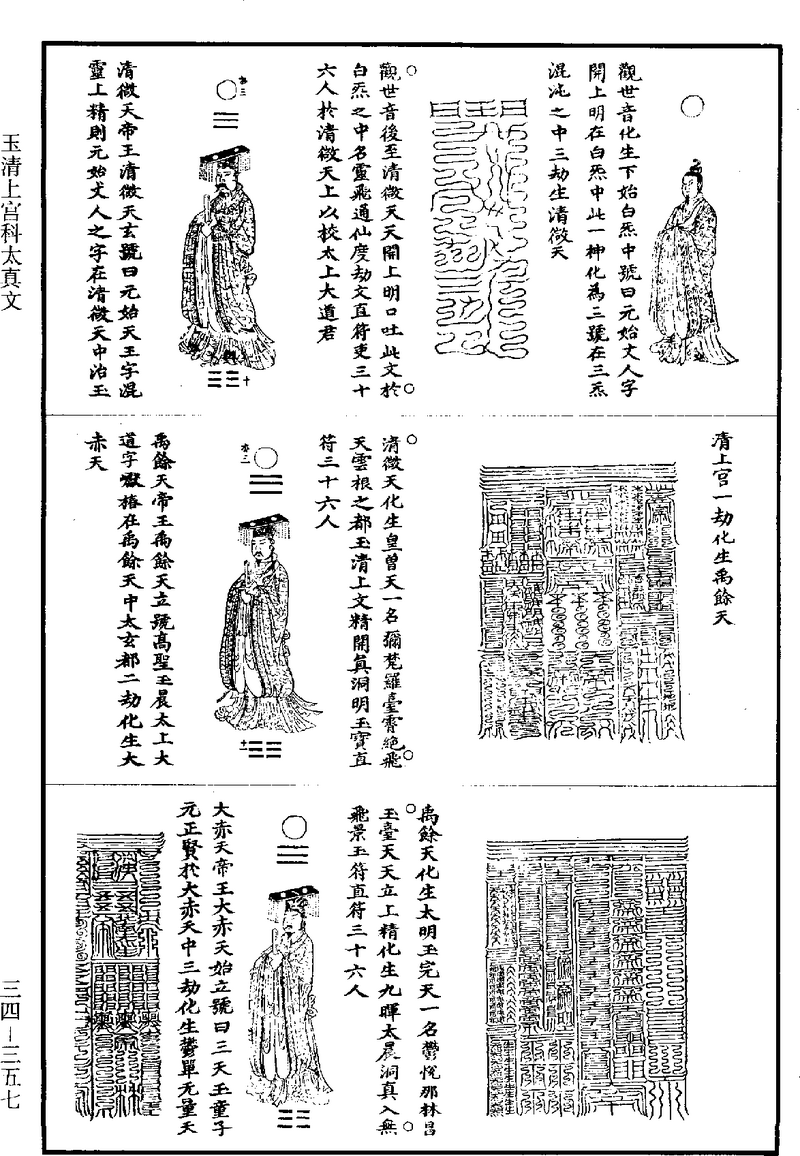 觀世音化生下始白炁中號曰元始丈人字
開上明在白炁中此一神化為三號在三炁
混沌之中三劫生清微天
觀世音後至清微天天開上明口吐此文於
白炁之中名靈飛通仙度劫文直符吏三十
六人於清微天上以校太上大道君
清微天帝王清微天玄號曰元始天王字混
靈上精則元始丈人之字在清微天中治玉
清上宮一劫化生禹餘天
清微天化生皇曾天一名彌梵羅臺霄絕飛
天雲根之都玉清上文精開真洞明玉寶直
符三十六人
禹餘天帝王禹餘天立號高聖玉晨太上大
道字 格在禹餘天中太玄都二劫化生大
赤天
禹餘天化生太明玉完天一名鬱悅那林昌
玉臺天天立上精化生九暉太晨洞真入無
飛景玉符直符三十六人
大赤天帝王大赤天始立號曰三天玉童子
元正賢於大赤天中三劫化生鬱單无量天
玉清上宮科太真文
三四—三五七